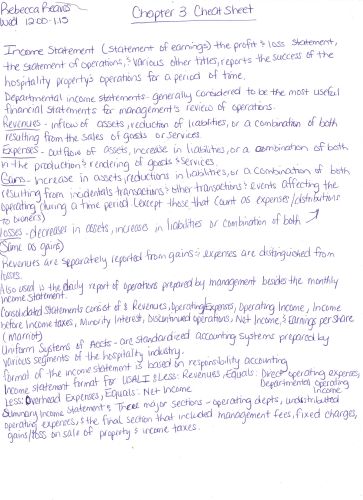 Rebecca Reaves
Wed 12:00-1:15
Chapter 3 Cheat Sheet
Income Statement (Statement of earnings) the profit & loss statement,
the statement of operations, & various other titles, reports the success of the
hospitality property's operations for a period of time.
Departmental income statements- generally considered to be the most useful
financial statements for management's review of operations.
Revenues - inflow of assets, reduction of liabilities, or a combination of both
resulting from the sales of goods or services.
Expenses - outflow of assets, increase in liabilities, or a combination of both
in the production & rendering of goods & services.
Gains - increase in assets, reductions in liabilities, or a combination of both
resulting from incidental transactions & other transactions & events affecting the
operating during a time period (except those that count as expenses/distributions
to owners)
losses - decreases in assets, increases in liabilities or combination of both
(same as gains)
Revenues are separately reported from gains & expenses are distinguished from
losses.
Also used is the daily report of operations prepared by management besides the monthly
income statement.
Consolidated statements consist of & Revenues, Operating Expenses, Operating Income, Income
before income taxes, Minority Interest, Discontinued operations, Net Income, & Earnings per share
(Marriot)
Uniform Systems of Accts - are standardized accounting systems prepared by
various segments of the hospitality industry.
Format of the income statement is based on responsibility accounting
Income statement format for USALI & Less: Revenues, Equals: Direct operating expenses,
Departmental operating Income
Less: Overhead Expenses, Equals: Net Income
Summary Income Statement & Three major sections - operating depts, undistributed
operating expenses, & the final section that included management fees, fixed charges,
gains/loss on sale of property & income taxes.